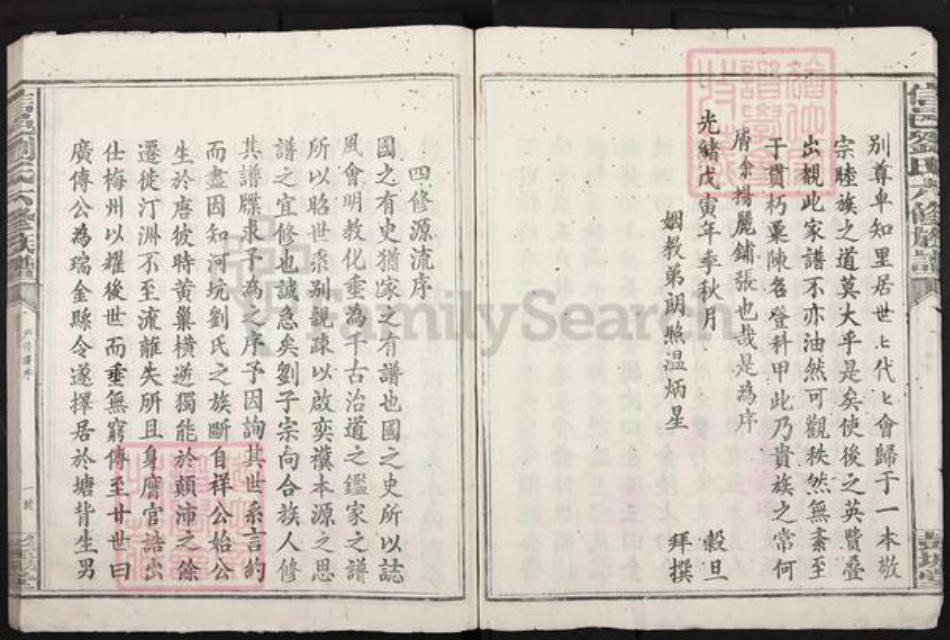 別尊卑知里居世〻代〻會歸于一本敬
宗睦族之道莫大乎是矣使後之英賢疊
出覩此家譜不亦油然可觀秩然無紊至
于貫朽粟陳名登科甲此乃貴族之常何
屑余揚麗鋪張也哉是為序
光緒戊寅年季秋月 穀旦
姻教弟朗照温炳星 拜撰
四修源流序
國之有史猶家之有譜也國之史所以誌
風會明教化垂為千古治道之鑑家之譜
所以昭世系别親疎以啟奕禩本源之思
譜之宜修也誠急矣劉子宗向合族人修
其譜牒求予為之序予因詢其世系言約
而盡因知河坑劉氏之族斷自祥公始公
生於唐彼時黄巢横逆獨能於顛沛之餘
遷徙汀洲不至流離失所且身膺官誥出
仕梅州以耀後世而垂無窮傳至廿世曰
廣傳公為瑞金縣令遂擇居於塘背生男
信邑劉氏六修族譜
FamilySearch